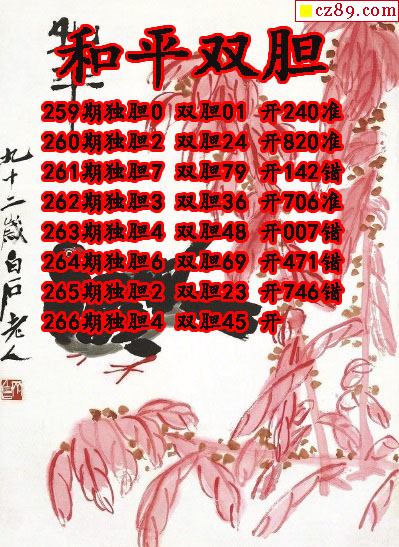 cz89.com
和平双胆
259期独胆0 双胆01 开240准
260期独胆2 双胆24 开820准
261期独胆7 双胆79 开142错
262期独胆3 双胆36 开706准
263期独胆4 双胆48 开007错
264期独胆6 双胆69 开471错
265期独胆2 双胆23 开746错
266期独胆4 双胆45 开
九十二岁白石老人